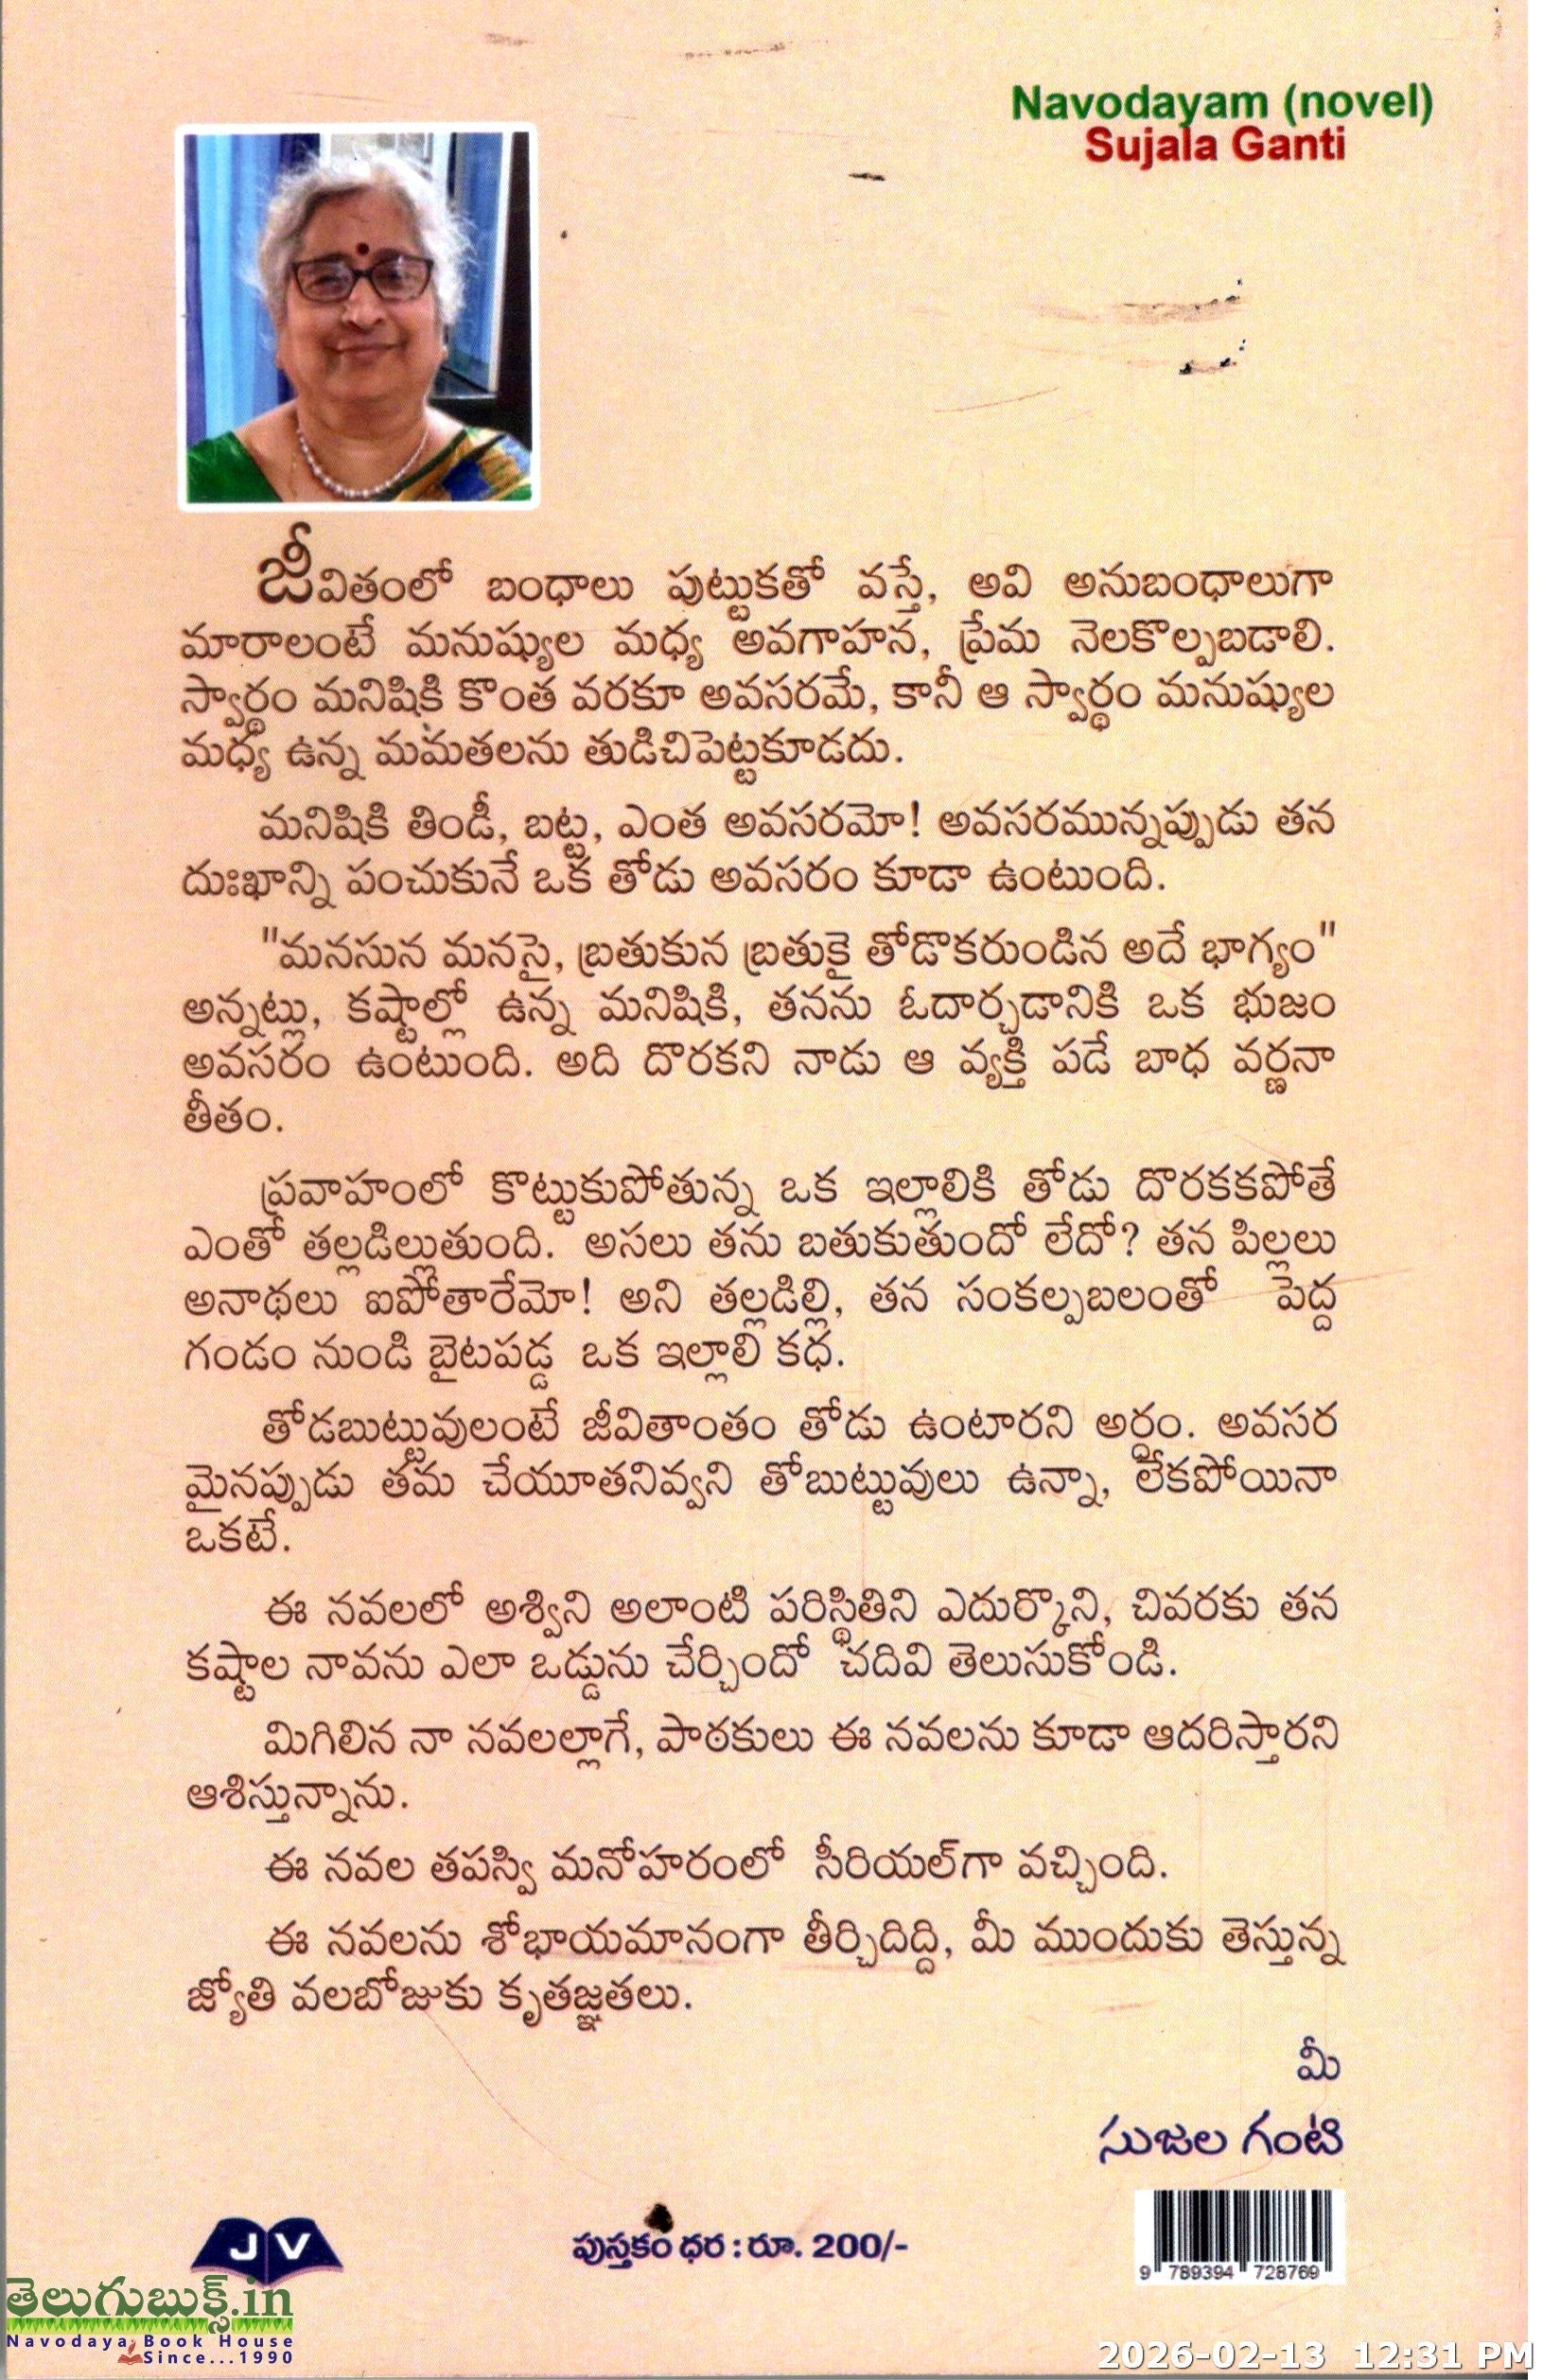 Navodayam (novel)
Sujala Ganti
జీవితంలో బంధాలు పుట్టుకతో వస్తే, అవి అనుబంధాలుగా
మారాలంటే మనుష్యుల మధ్య అవగాహన, ప్రేమ నెలకొల్పబడాలి.
స్వార్థం మనిషికి కొంత వరకూ అవసరమే, కానీ ఆ స్వార్థం మనుష్యుల
మధ్య ఉన్న మమతలను తుడిచిపెట్టకూడదు.
మనిషికి తిండీ, బట్ట, ఎంత అవసరమో! అవసరమున్నప్పుడు తన
దుఃఖాన్ని పంచుకునే ఒక తోడు అవసరం కూడా ఉంటుంది.
"మనసున మనసై, బ్రతుకున బ్రతుకై తోడొకరుండిన అదే భాగ్యం"
అన్నట్లు, కష్టాల్లో ఉన్న మనిషికి, తనను ఓదార్చడానికి ఒక భుజం
అవసరం ఉంటుంది. అది దొరకని నాడు ఆ వ్యక్తి పడే బాధ వర్ణనా
తీతం.
ప్రవాహంలో కొట్టుకుపోతున్న ఒక ఇల్లాలికి తోడు దొరకకపోతే
ఎంతో తల్లడిల్లుతుంది. అసలు తను బతుకుతుందో లేదో? తన పిల్లలు
అనాథలు ఐపోతారేమో! అని తల్లడిల్లి, తన సంకల్పబలంతో పెద్ద
గండం నుండి బైటపడ్డ ఒక ఇల్లాలి కధ.
తోడబుట్టువులంటే జీవితాంతం తోడు ఉంటారని అర్ధం. అవసర
మైనప్పుడు తమ చేయూతనివ్వని తోబుట్టువులు ఉన్నా, లేకపోయినా
ఒకటే.
ఈ నవలలో అశ్విని అలాంటి పరిస్థితిని ఎదుర్కొని, చివరకు తన
కష్టాల నావను ఎలా ఒడ్డును చేర్చిందో చదివి తెలుసుకోండి.
మిగిలిన నా నవలల్లాగే, పాఠకులు ఈ నవలను కూడా ఆదరిస్తారని
ఆశిస్తున్నాను.
ఈ నవల తపస్వి మనోహరంలో సీరియల్‌గా వచ్చింది.
ఈ నవలను శోభాయమానంగా తీర్చిదిద్ది, మీ ముందుకు తెస్తున్న
జ్యోతి వలబోజుకు కృతజ్ఞతలు.
మీ
సుజల గంటి
JV
పుస్తకం ధర : రూ. 200/-
9 789394 728769
తెలుగుబుక్స్.in
Navodaya Book House
Since...1990
2026-02-13 12:31 PM